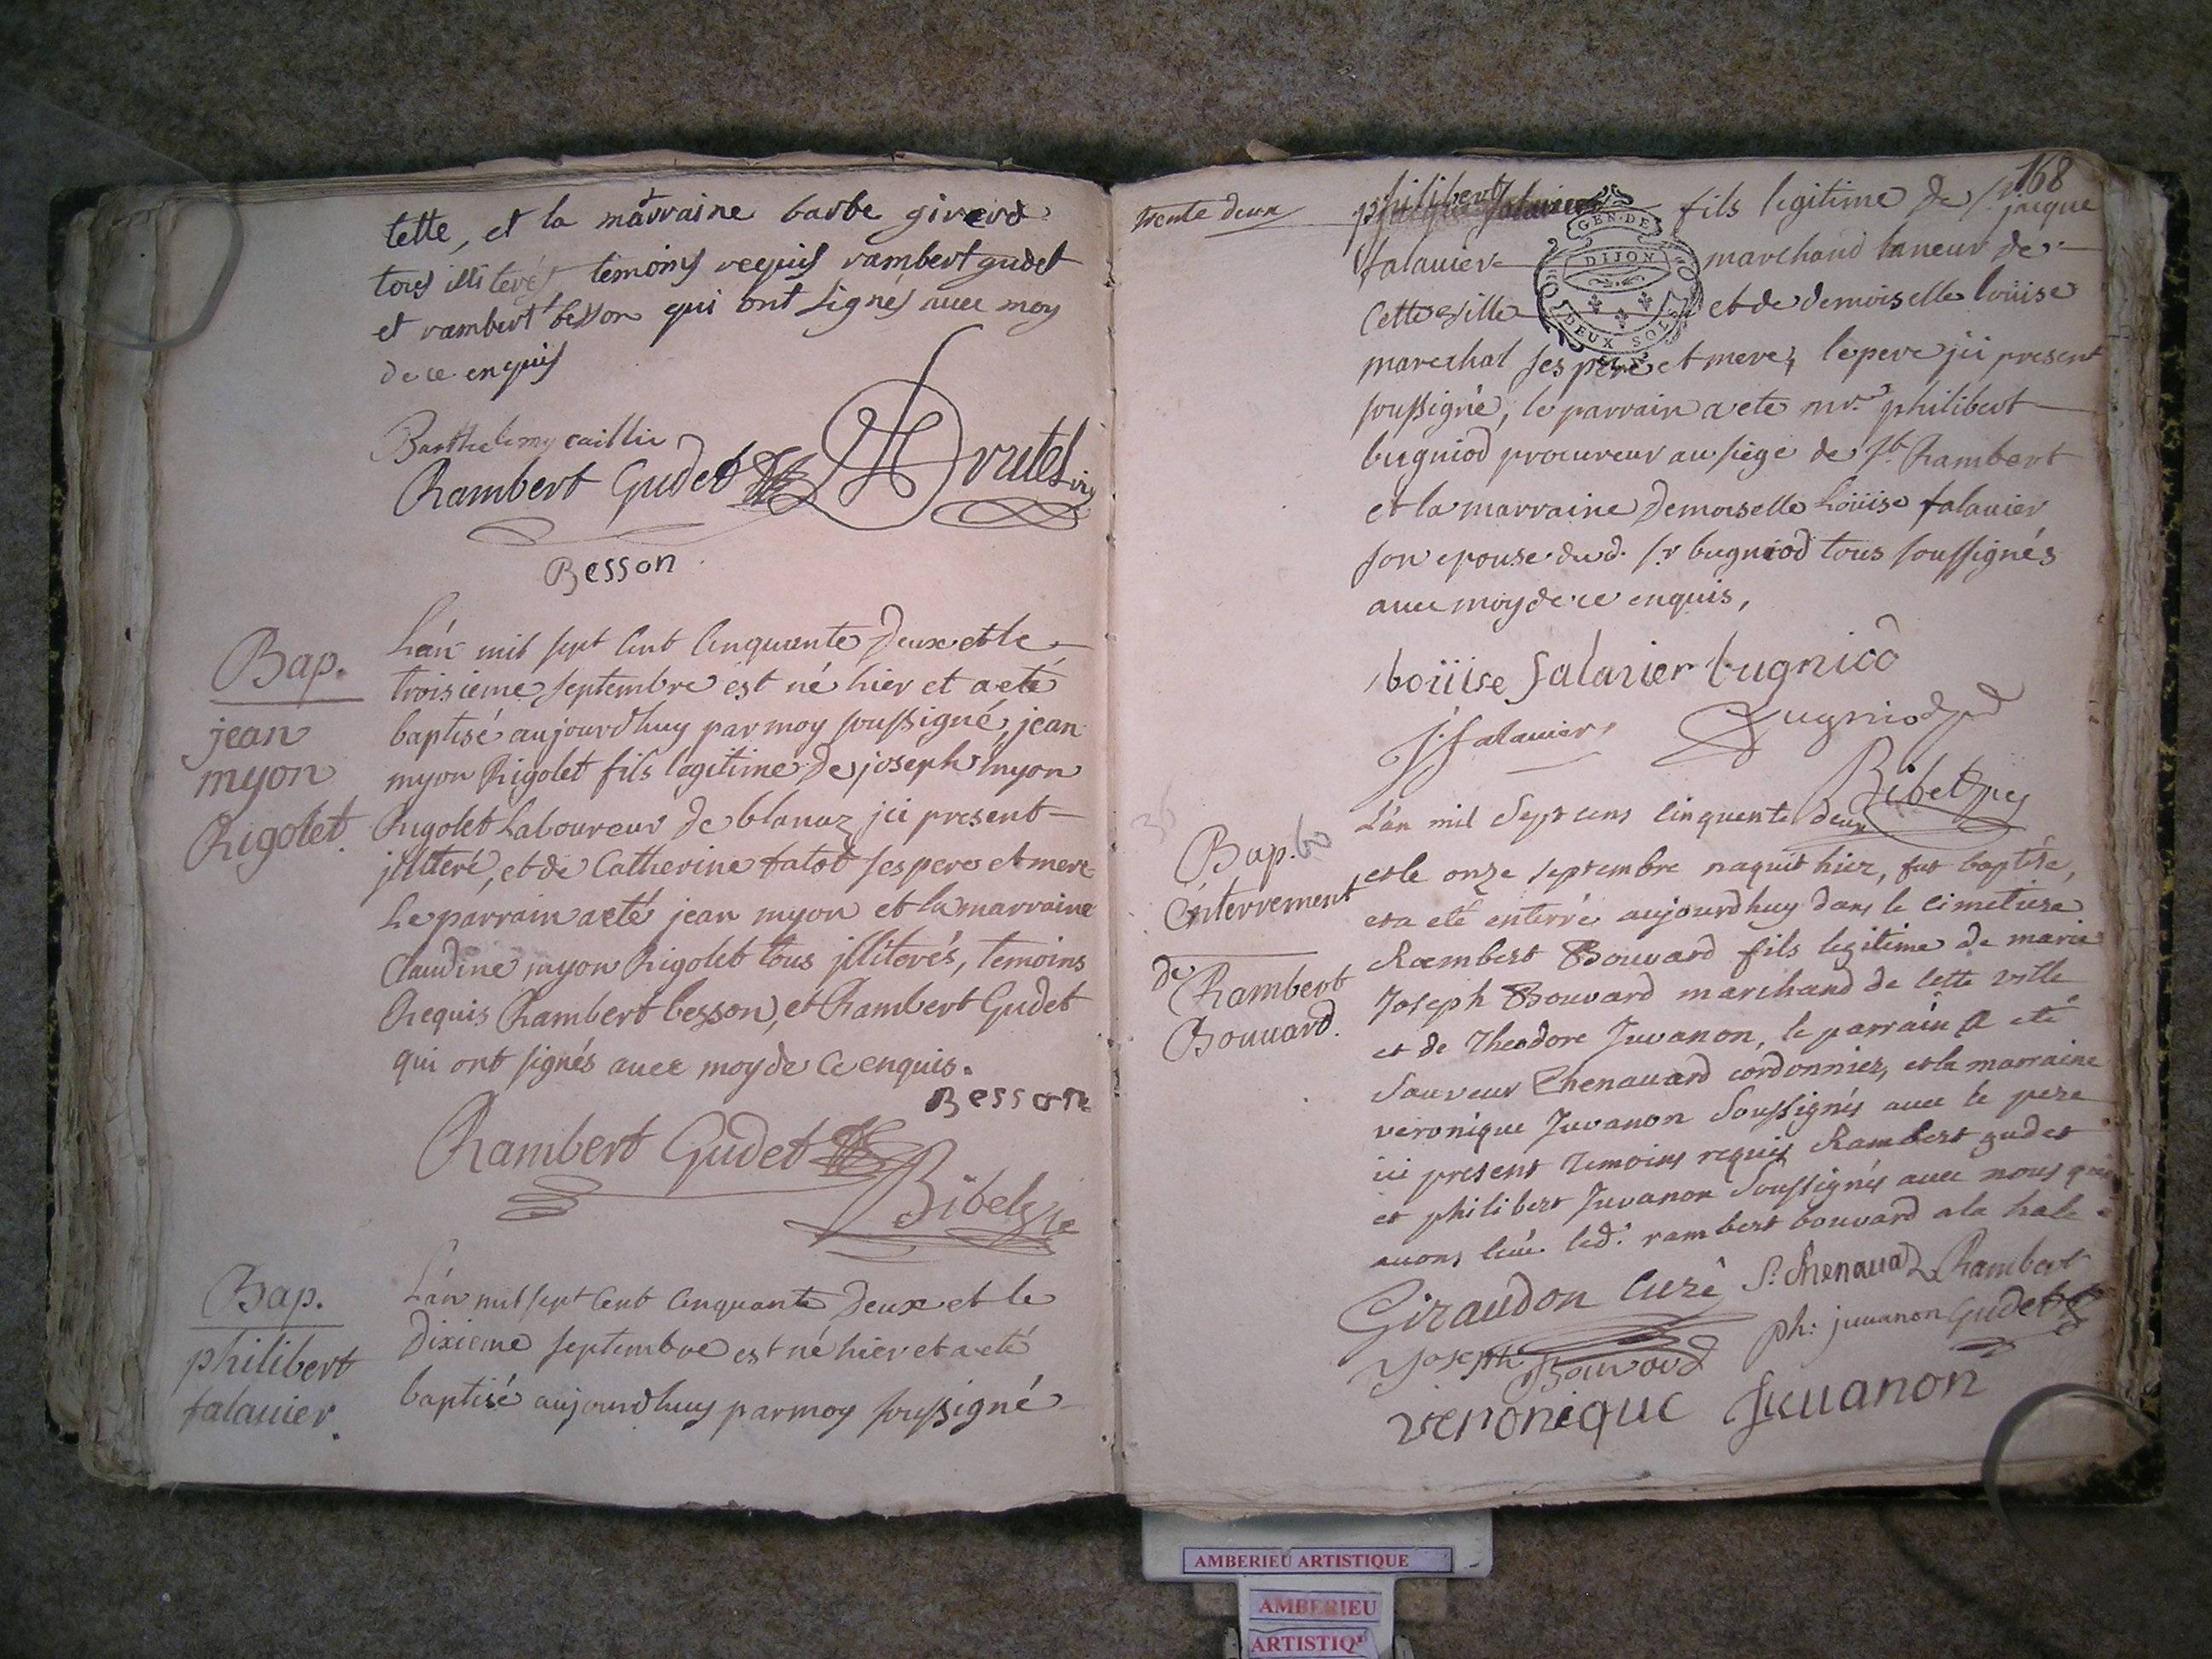 tette, et la marraine barbe girerd
tous illiterés temoins requis rambert gudet
et rambert besson qui ont signés avec moy
de ce enquis
Barthelemy caillie
Rambert Gudet
Besson
Bap.
jean
myon
Rigolet.
L'an mil sept cent cinquante deux et le
troisieme septembre est né hier et a eté
baptisé aujourdhuy par moy soussigné, jean
myon Rigolet fils legitime de joseph myon
Rigolet Laboureur de blanaz ici present
jlliteré, et de Catherine tatot ses pere et mere
Le parrain a eté jean myon et la marraine
Claudine myon Rigolet tous jlliterés, temoins
Requis Rambert besson, et Rambert Gudet
qui ont signés avec moy de ce enquis.
Besson
Rambert Gudet
Ribet
Bap.
philibert
falauier.
L'an mil sept cent cinquante deux et le
dixieme septembre est né hier et a eté
baptisé aujourdhuy par moy soussigné
168
trente deux
philibert fils legitime de sr jacque
falauier marchand taneur de
cette ville et de demoiselle loüise
marechal ses pere et mere, le pere ici present
soussigné, le parrain a ete mr. philibert
bugniod procureur au siege de st Rambert
et la marraine demoiselle Loüise falauier
son epouse dud. sr bugniod tous soussignés
avec moy de ce enquis,
loüise falauier bugniod
j. falauier Bugniod
Ribet
GEN. DE
DIJON
DEUX SOLS
Bap. 60
Enterrement
de
Rambert
Bouuard.
L'an mil sept cens cinquente deux
et le onze septembre naquit hier, fut baptisé,
et a eté enterré aujourdhuy dans le cimetiere
Rambert Bouvard fils legitime de marie
Joseph Bouvard marchand de cette ville
et de Theodore Juvanon, le parrain a eté
Sauveur Chenavard cordonnier, et la marraine
veronique Juvanon soussignés avec le pere
ici present temoins requis Rambert gudet
et philibert Juvanon soussignés avec nous qui
auons leué led. rambert bouvard a la hale
Giraudon Curé S. Chenauad Rambert
ph: juuanon Gudet
Joseph Bouvard
veronique Juuanon
AMBERIEU ARTISTIQUE
AMBERIEU
ARTISTIQ